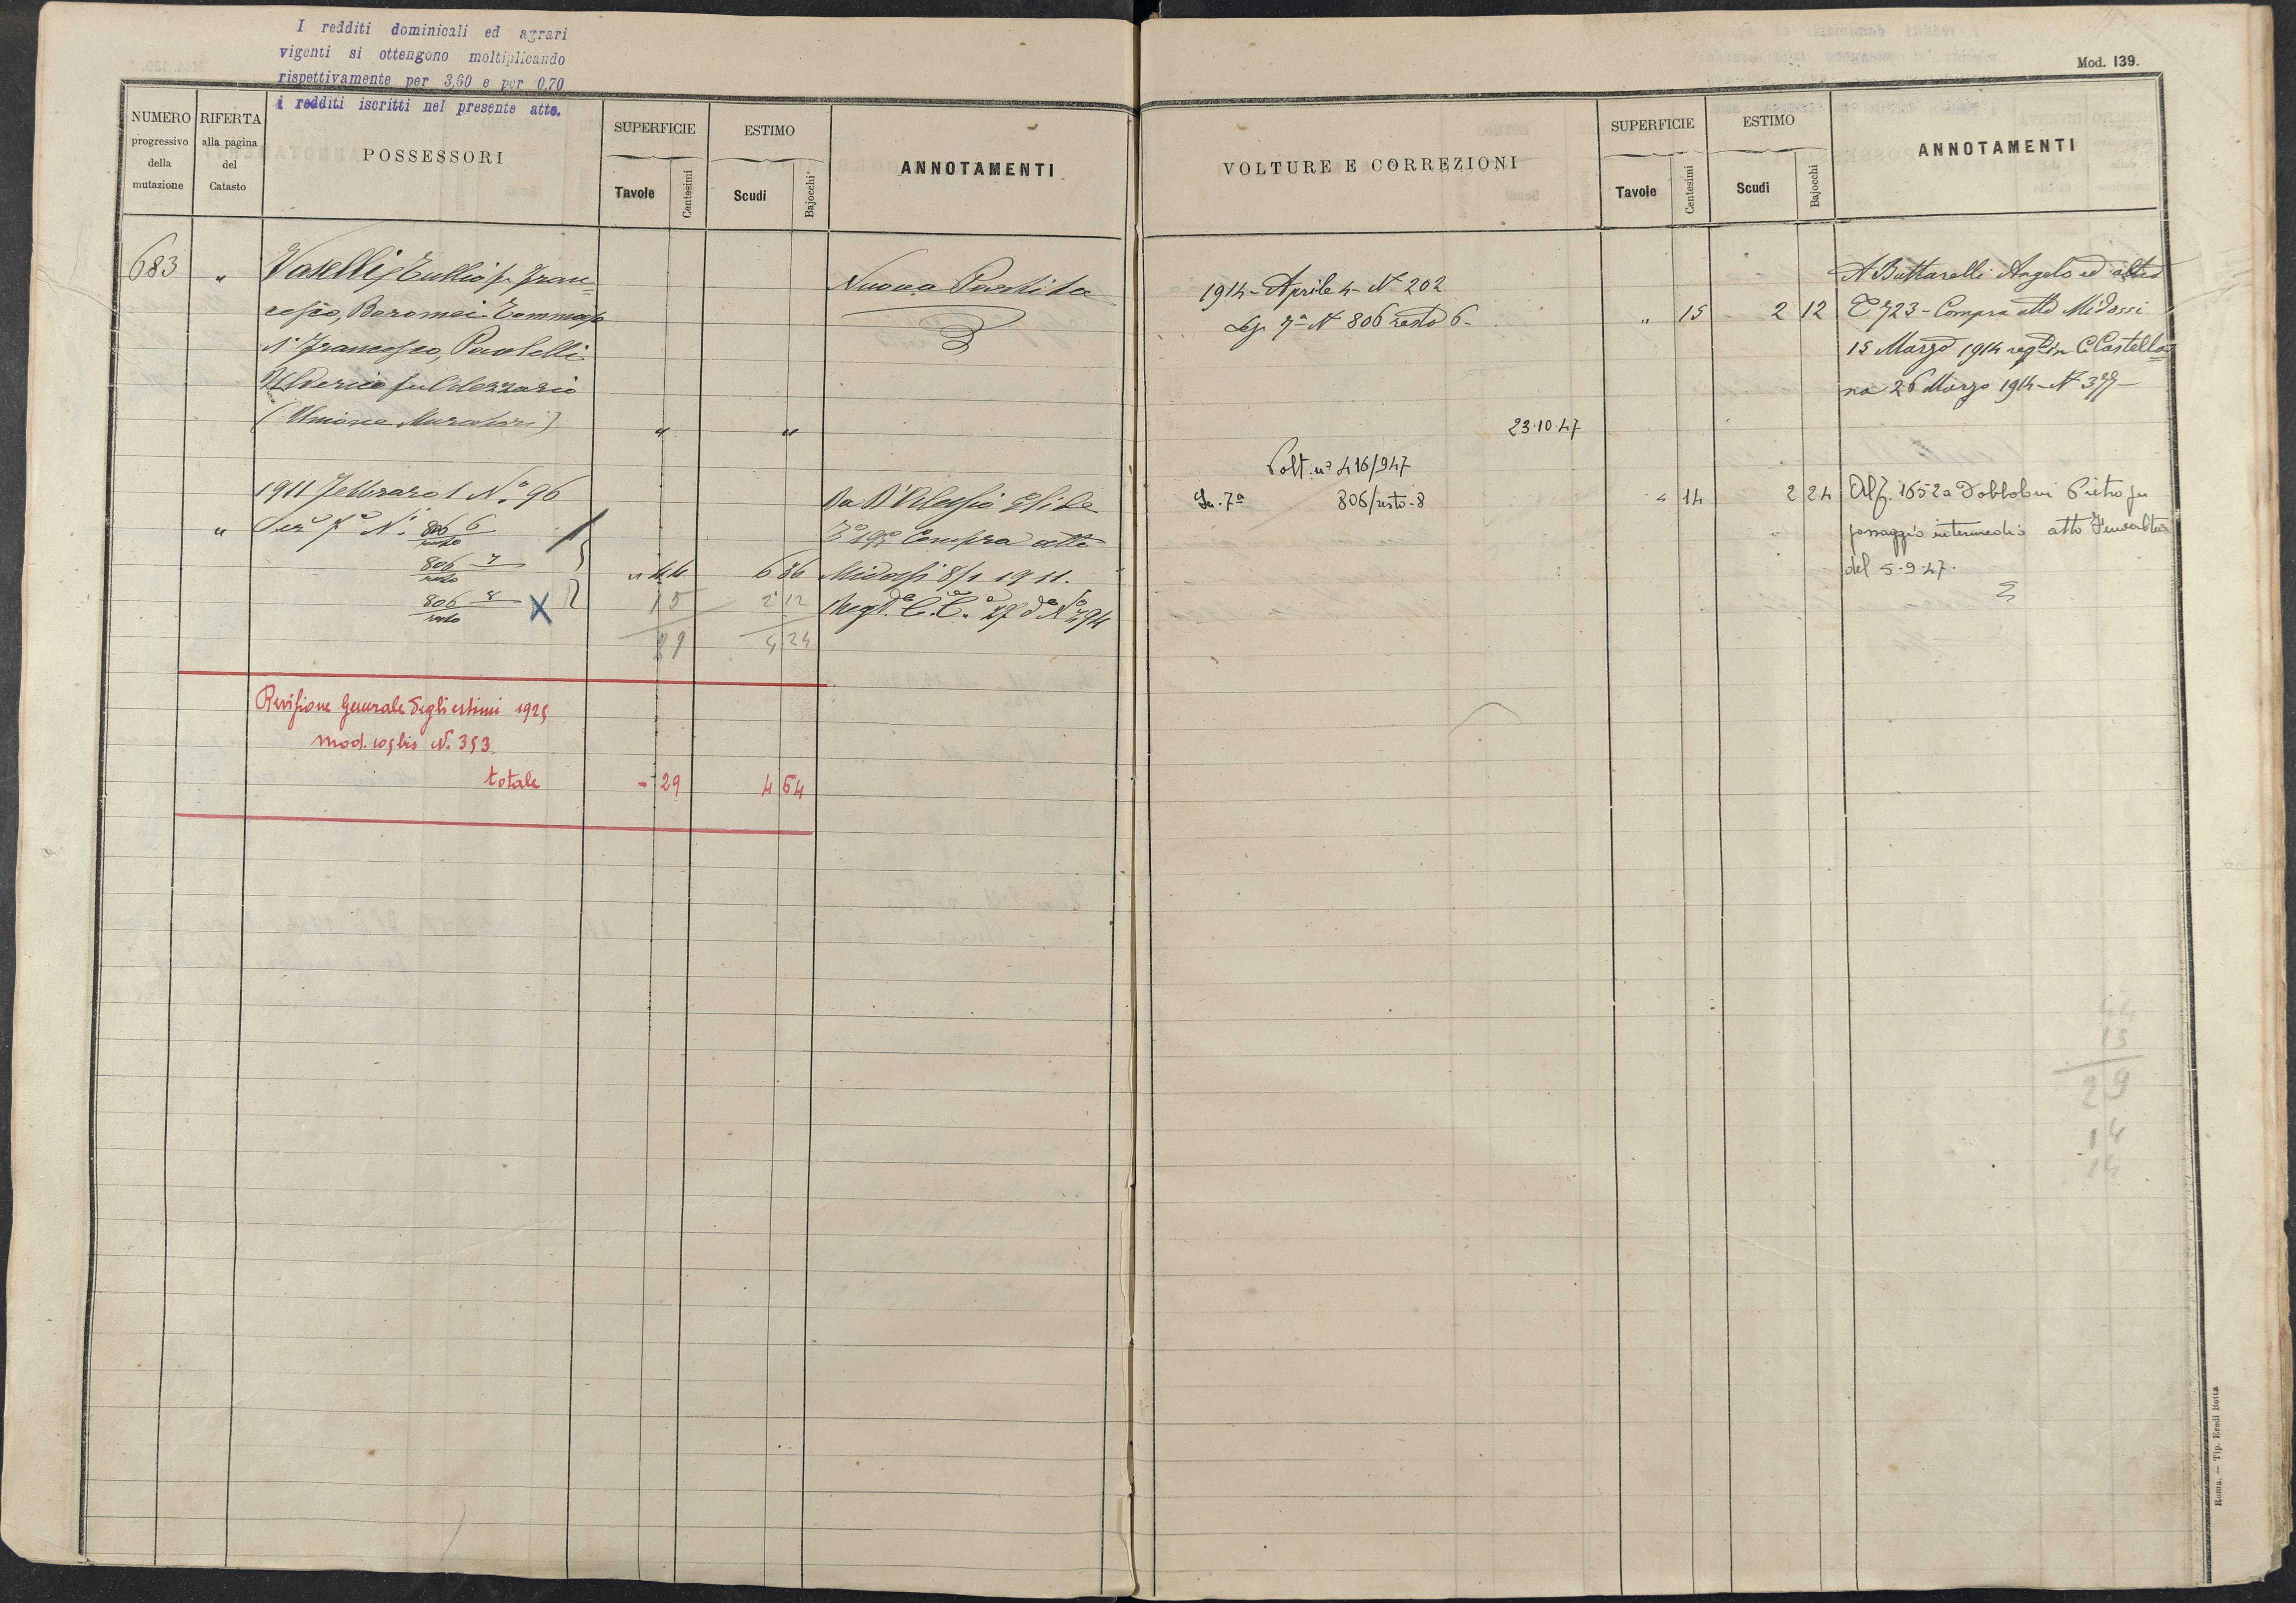 I redditi dominicali ed agrari
vigenti si ottengono moltiplicando
rispettivamente per 3,60 e per 0,70
i redditi iscritti nel presente atto.
NUMERO
progressivo
della
mutazione
RIFERTA
alla pagina
del
Catasto
POSSESSORI
SUPERFICIE
Tavole
Centesimi
ESTIMO
Scudi
Bajocchi
ANNOTAMENTI
683 " Vaselli Tullio fu Fran=
cesco, Baromei Tommaso
di Francesco, Paolelli
Ulderico fu
(Unione Muratori) " "
Nuova Partita
1911 Febbraro 1 No. 96
" Sez. 7a N. 806/resto 6
806/resto 7
806/resto 8 X
" 44 6 36
15 2 12
29 4 24
Da D'Alessio
Compra atto
Midossi 8/1 1911.
Regto C. C. 27 do No 294
Revisione Generale degli estimi 1925
mod. 105 bis N. 353
totale - 29 4 64
Mod. 139.
VOLTURE E CORREZIONI
SUPERFICIE
Tavole
Centesimi
ESTIMO
Scudi
Bajocchi
ANNOTAMENTI
1914 - Aprile 4 - No 202
Sez. 7a No 806 resto 6 - " 15 2 12
A Buttarelli Angelo ed altri
To 723 - Compra atto Midossi
15 Marzo 1914 regto in C. Castella=
na 26 Marzo 1914 - No 377 -
23.10.47
Volt. no 416/947
Sez. 7a 806/resto-8 " 14 2 24
All'. 1652 a Dobboloni Pietro per
passaggio intermedio atto
del 5-9-47.
44
15
29
14
14
Roma. — Tip. Eredi Botta